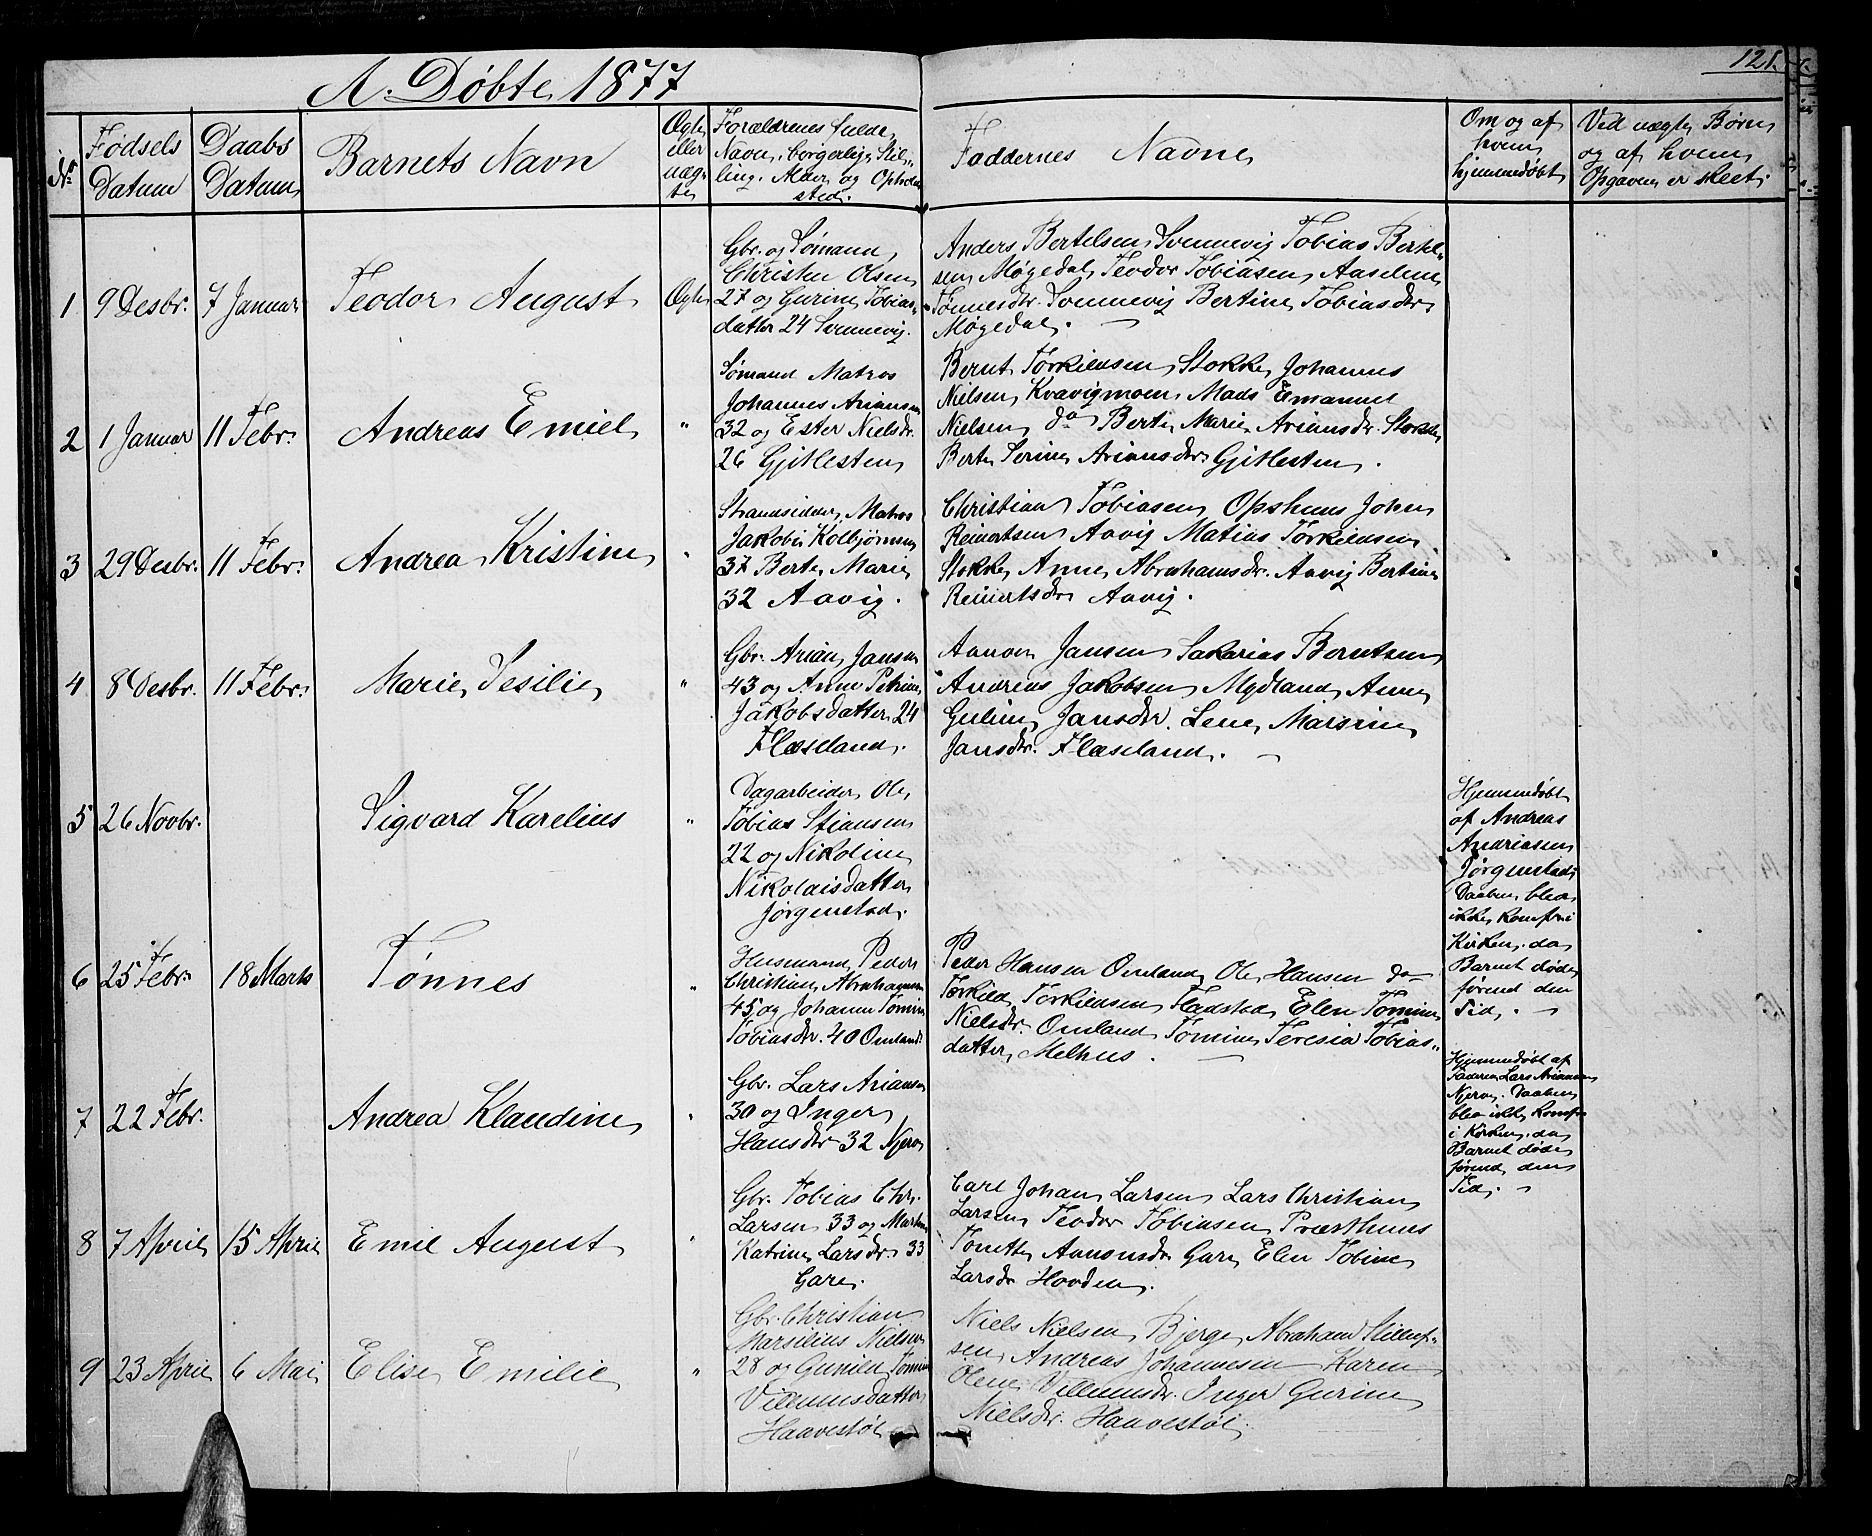 121.
A. Døbte 1877
No.
Fødsels Datum
Daabs Datum
Barnets Navn
Ægte eller uægte
Forældrenes fulde Navn, borgerlige Stilling, Alder og Opholdssted.
Faddernes Navne
Om og af hvem hjemmedøbt
Ved uægte Børn og af hvem Opgaven er skeet.
1
9 Desbr.
7 Januar
Teodor August
Ægte
Gbr. og Sømand
Christen Olsen
27 og Gurine Tobias-
datter 24 Svennevig.
Anders Bertelsen Svennevig Tobias Bertel-
sen Møgedal, Teodor Tobiasen, Aaselene
Tønnesdr. Svennevig Bertine Tobiasdr
Møgedal.
2
1 Januar
11 Febr.
Andreas Emiel
"
Sømand Matros
Johannes Ariansen
32 og Ester Nielsdr.
26 Gjitlesten
Bernt Torkildsen Stokke Johannes
Nielsen Kvavigmoen, Mads Emanuel
Nielsen do Berte Marie Ariansdr. Stokke
Berte Serine Ariansdr Gjitlesten.
3
29 Desbr.
11 Febr.
Andrea Kristine
"
Strandsidder, Matros
Jakob Kolbjørnsen
37 Berte Marie
32 Aavig.
Christian Tobiasen Opshuus Johan
Reinertsen Aavig Matias Torkildsen
Stokke Anne Abrahamsdr. Aavig Bertine
Reinertsdr Aavig.
4
8 Desbr.
11 Febr.
Marie Sesilie
"
Gbr. Arian Jansen
43 og Anne Petrine
Jakobsdatter 24
Flæseland.
Aanon Jansen Sakarias Berntsen
Andreas Jakobsen Mydland, Anne
Guline Jansdr. Lene Marsrine
Jansdr. Flæseland.
5
26 Novbr.
Sigvard Karelius
"
Dagarbeider Ole
Tobias Stiansen
22 og Nikoline
Nikolaisdatter
Jørgenstad.
Hjemmedøbt
af Andreas
Andriasen
Jørgenstad,
Daaben blev
ikke komfr. i
Kirken, da
Barnet døde
førend den
Tid.
6
25 Febr.
18 Marts
Tønnes
"
Husmand, Peder
Christian Abrahamsen
45 og Johanne Tomine
Tobiasdr. 40 Omland.
Peder Hansen Omland, Ole Hansen do
Torkild Torkildsen Fladstad, Elen Tomine
Nielsdr. Omland Tomine Teresia Tobias-
datter Melhus.
7
22 Febr.
Andrea Klaudine
"
Gbr. Lars Ariansen
30 og Inger
Hansdr 32 Njerve
Hjemmedøbt af
Faderen Lars Ariansen
Njerve. Daaben
blev ikke komfr.
i Kirken, da
Barnet døde
førend den
Tid.
8
7 April
15 April
Emil August
"
Gbr. Tobias Chr.
Larsen 33 og Martine
Katrine Larsdr 33
Gare.
Carl Johan Larsen Lars Christian
Larsen Teodor Tobiasen Præsthuus
Tonette Aanonsdr Gare Elen Tobine
Larsdr Hovden.
9
23 April
6 Mai
Elise Emilie
"
Gbr. Christian
Marselius Nielsen
28 og Gunild Tomine
Villumsdatter
Haavestøl
Niels Nielsen Bjerge Abraham
sen Andreas Johannesen Karen
Olene Villumsdr. Inger Gurine
Nielsdr. Haavestøl.